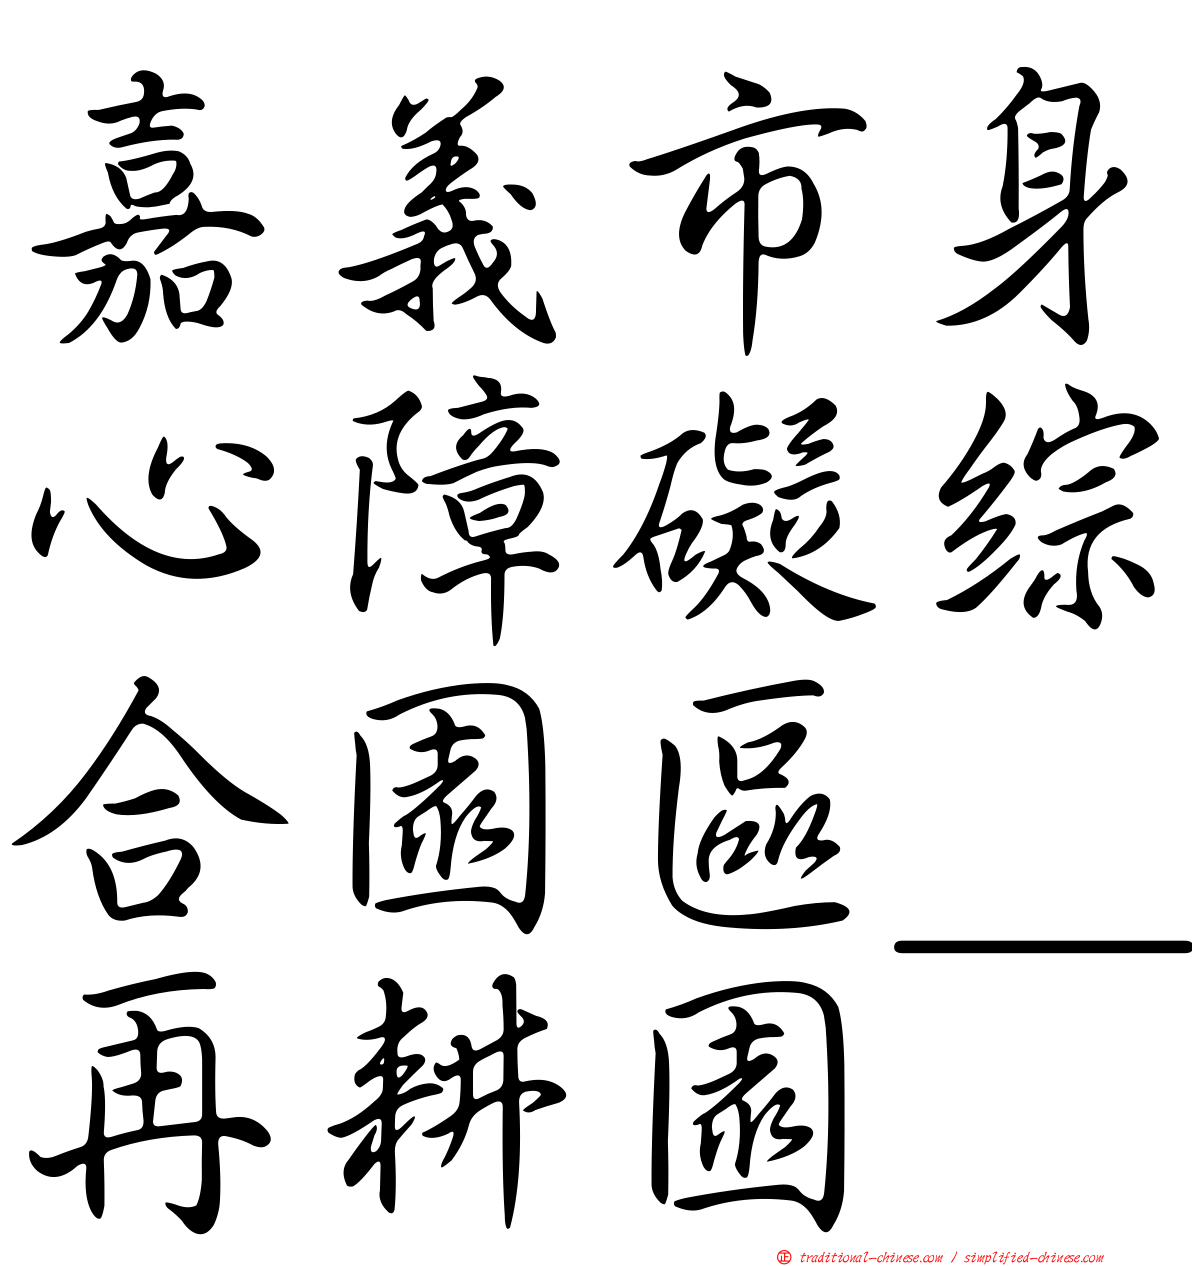 嘉義市身
心障礙綜
合園區_
再耕園
㊣ traditional-chinese.com / simplified-chinese.com